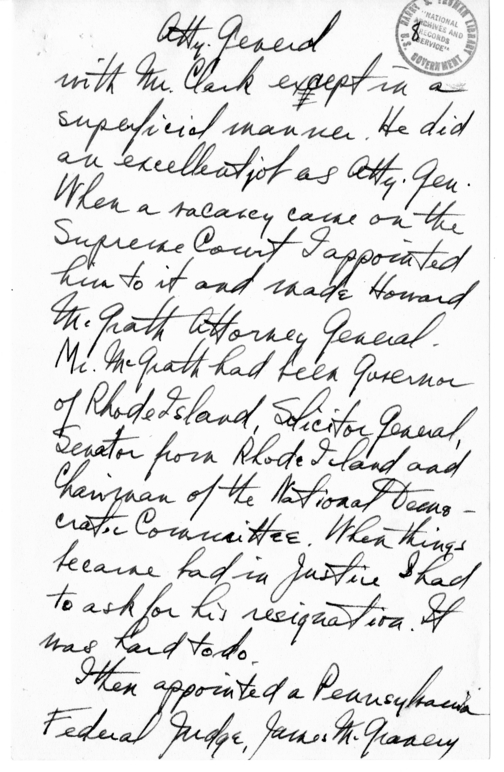 HARRY S. TRUMAN LIBRARY
"NATIONAL
ARCHIVES AND
RECORDS
SERVICE"
U.S. GOVERNMENT
8
Atty. General
with Mr. Clark except in a
superficial manner. He did
an excellent job as Atty. Gen.
When a vacancy came on the
Supreme Court I appointed
him to it and made Howard
McGrath Attorney General.
Mr. McGrath had been Governor
of Rhode Island, Solicitor General,
Senator from Rhode Island and
Chairman of the National Demo-
cratic Committee. When things
became bad in Justice I had
to ask for his resignation. It
was hard to do.
I then appointed a Pennsylvania
Federal Judge, James McGranery